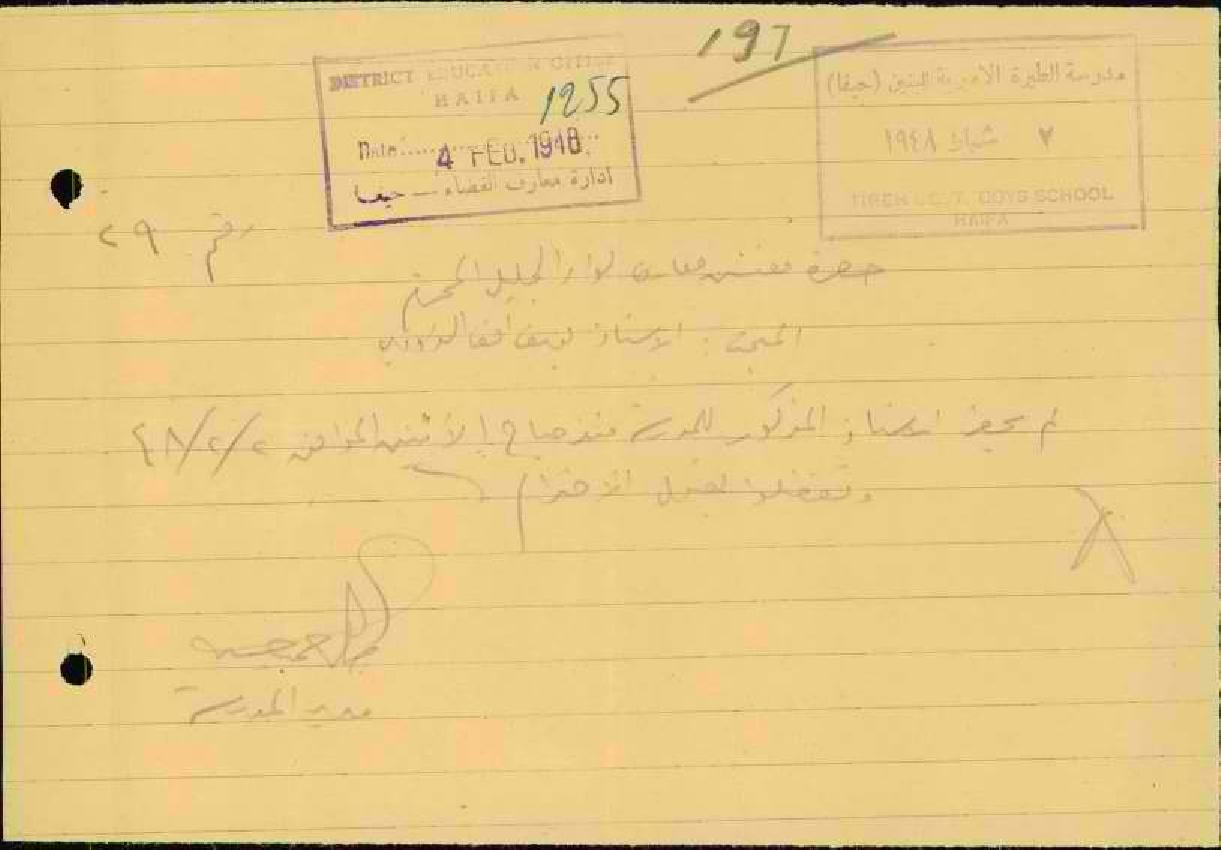 197
DISTRICT EDUCATION OFFICE
HAIFA
1255
Date 4 FEB. 1948
ادارة معارف القضاء — حيفا
مدرسة الطيرة الاميرية للبنين (حيفا)
٢ شباط ١٩٤٨
TIREH GOVT. BOYS SCHOOL
HAIFA
رقم ٢٩
حضرة مفتش معارف لواء الجليل المحترم
المبحث : الاستاذ
لم يحضر الاستاذ المذكور للمدرسة منذ صباح الاثنين الموافق ٢/٢/٤٨
وتفضلوا بقبول الاحترام
مدير المدرسة